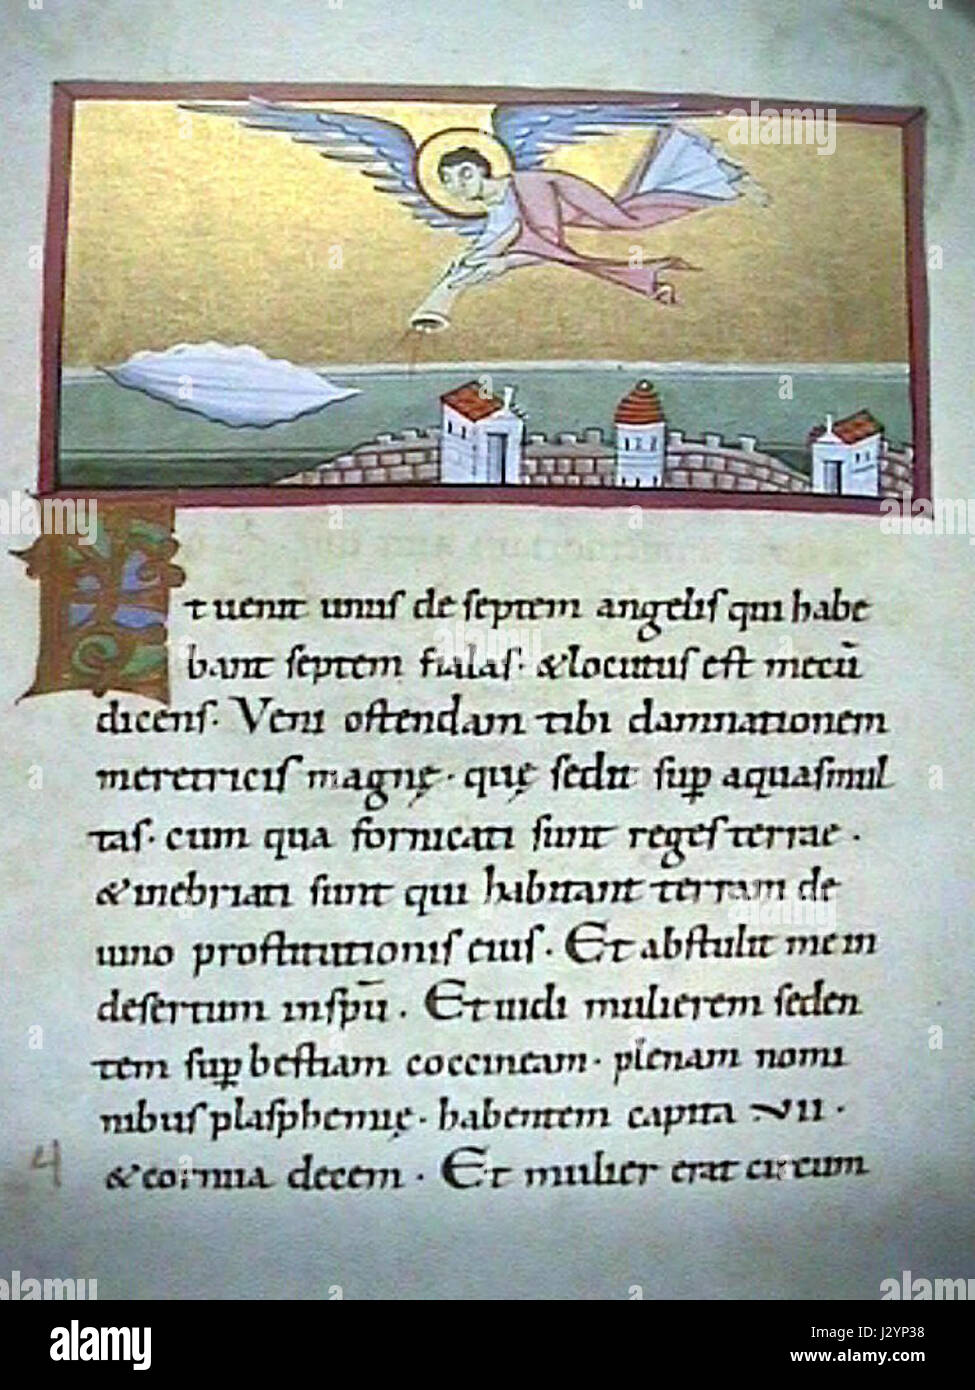 Et uenit unus de septem angelis qui habe
bant septem fialas · & locutus est mecū
dicens · Veni ostendam tibi damnationem
meretricis magnę · quę sedit sup̱ aquas mul
tas · cum qua fornicati sunt reges terrae ·
& inebriati sunt qui habitant terram de
uino prostitutionis eius · Et abstulit me in
desertum in sp̄u · Et uidi mulierem seden
tem sup̱ bestiam coccineam · plenam nomi
nibus plasphemię · habentem capita VII ·
& cornua decem · Et mulier erat circum
4
alamy
Image ID: J2YP38
www.alamy.com